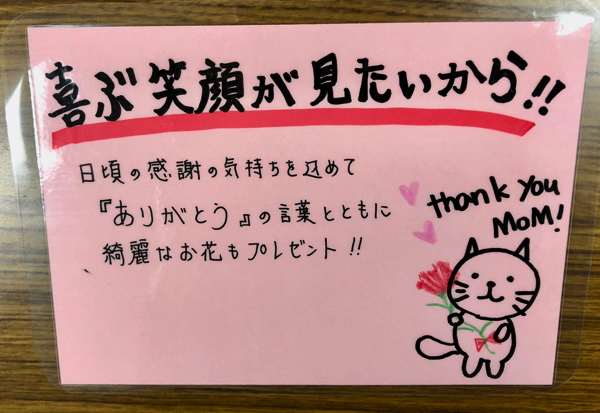 喜ぶ笑顔が見たいから!!
日頃の感謝の気持ちを込めて
『ありがとう』の言葉とともに
綺麗なお花もプレゼント!!
thank you
MoM!